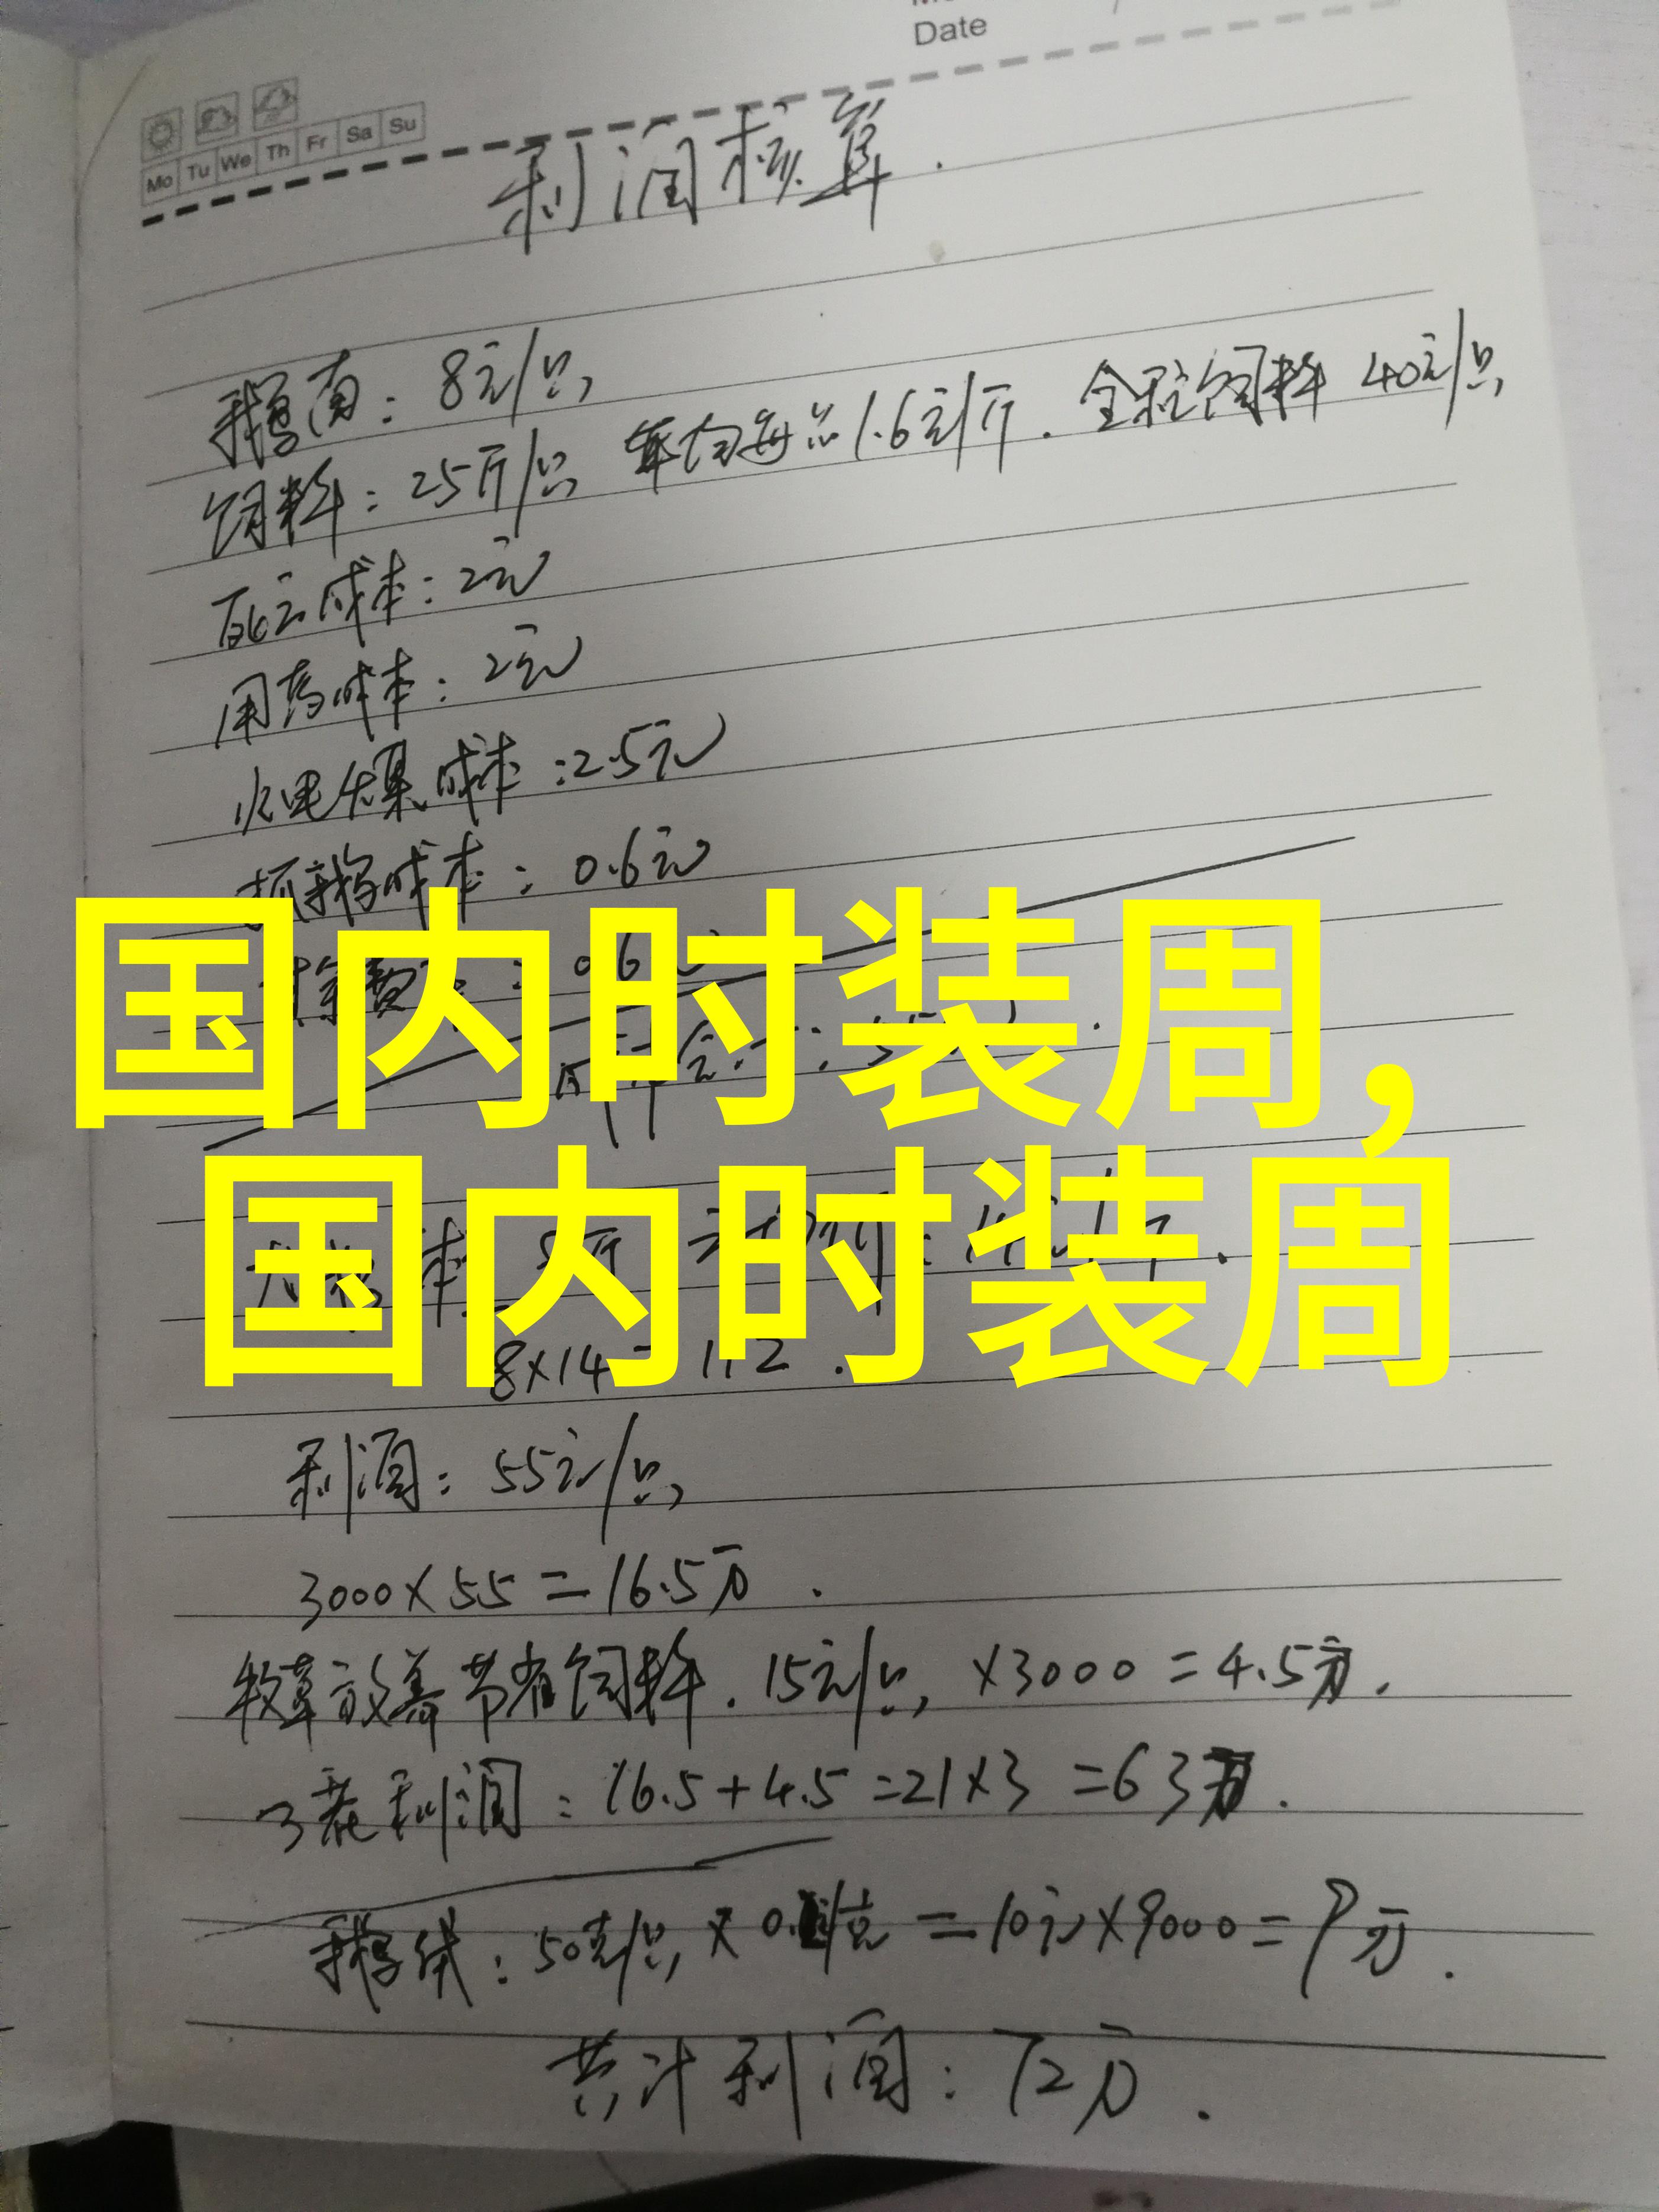 Date
Mo Tu We Th Fr Sa Su
利润核算.
鹅苗: 8元/只
饲料: 25斤/只 平均每 1.6元/斤. 全程饲料 40元/只
死亡成本: 2元
用药成本: 2元
水电 成本: 2.5元
抓鹅成本: 0.6元
国内时装周,
国内时装周
8×14=112.
利润: 55元/只
3000×55=16.5万.
牧草放养节省饲料. 15元/只, ×3000=4.5万.
3茬利润: 16.5+4.5=21×3=63万.
鹅绒: 50克/只 × =10元×9000=9万.
共计利润: 72万.